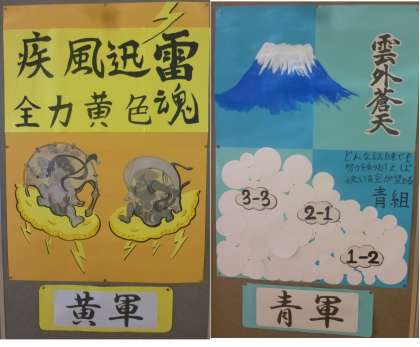 疾風迅雷
全力黄色魂
黄軍
雲外蒼天
どんな試練でも
努力をつづければ
快い青空が望める
青組
3-3
2-1
1-2
青軍